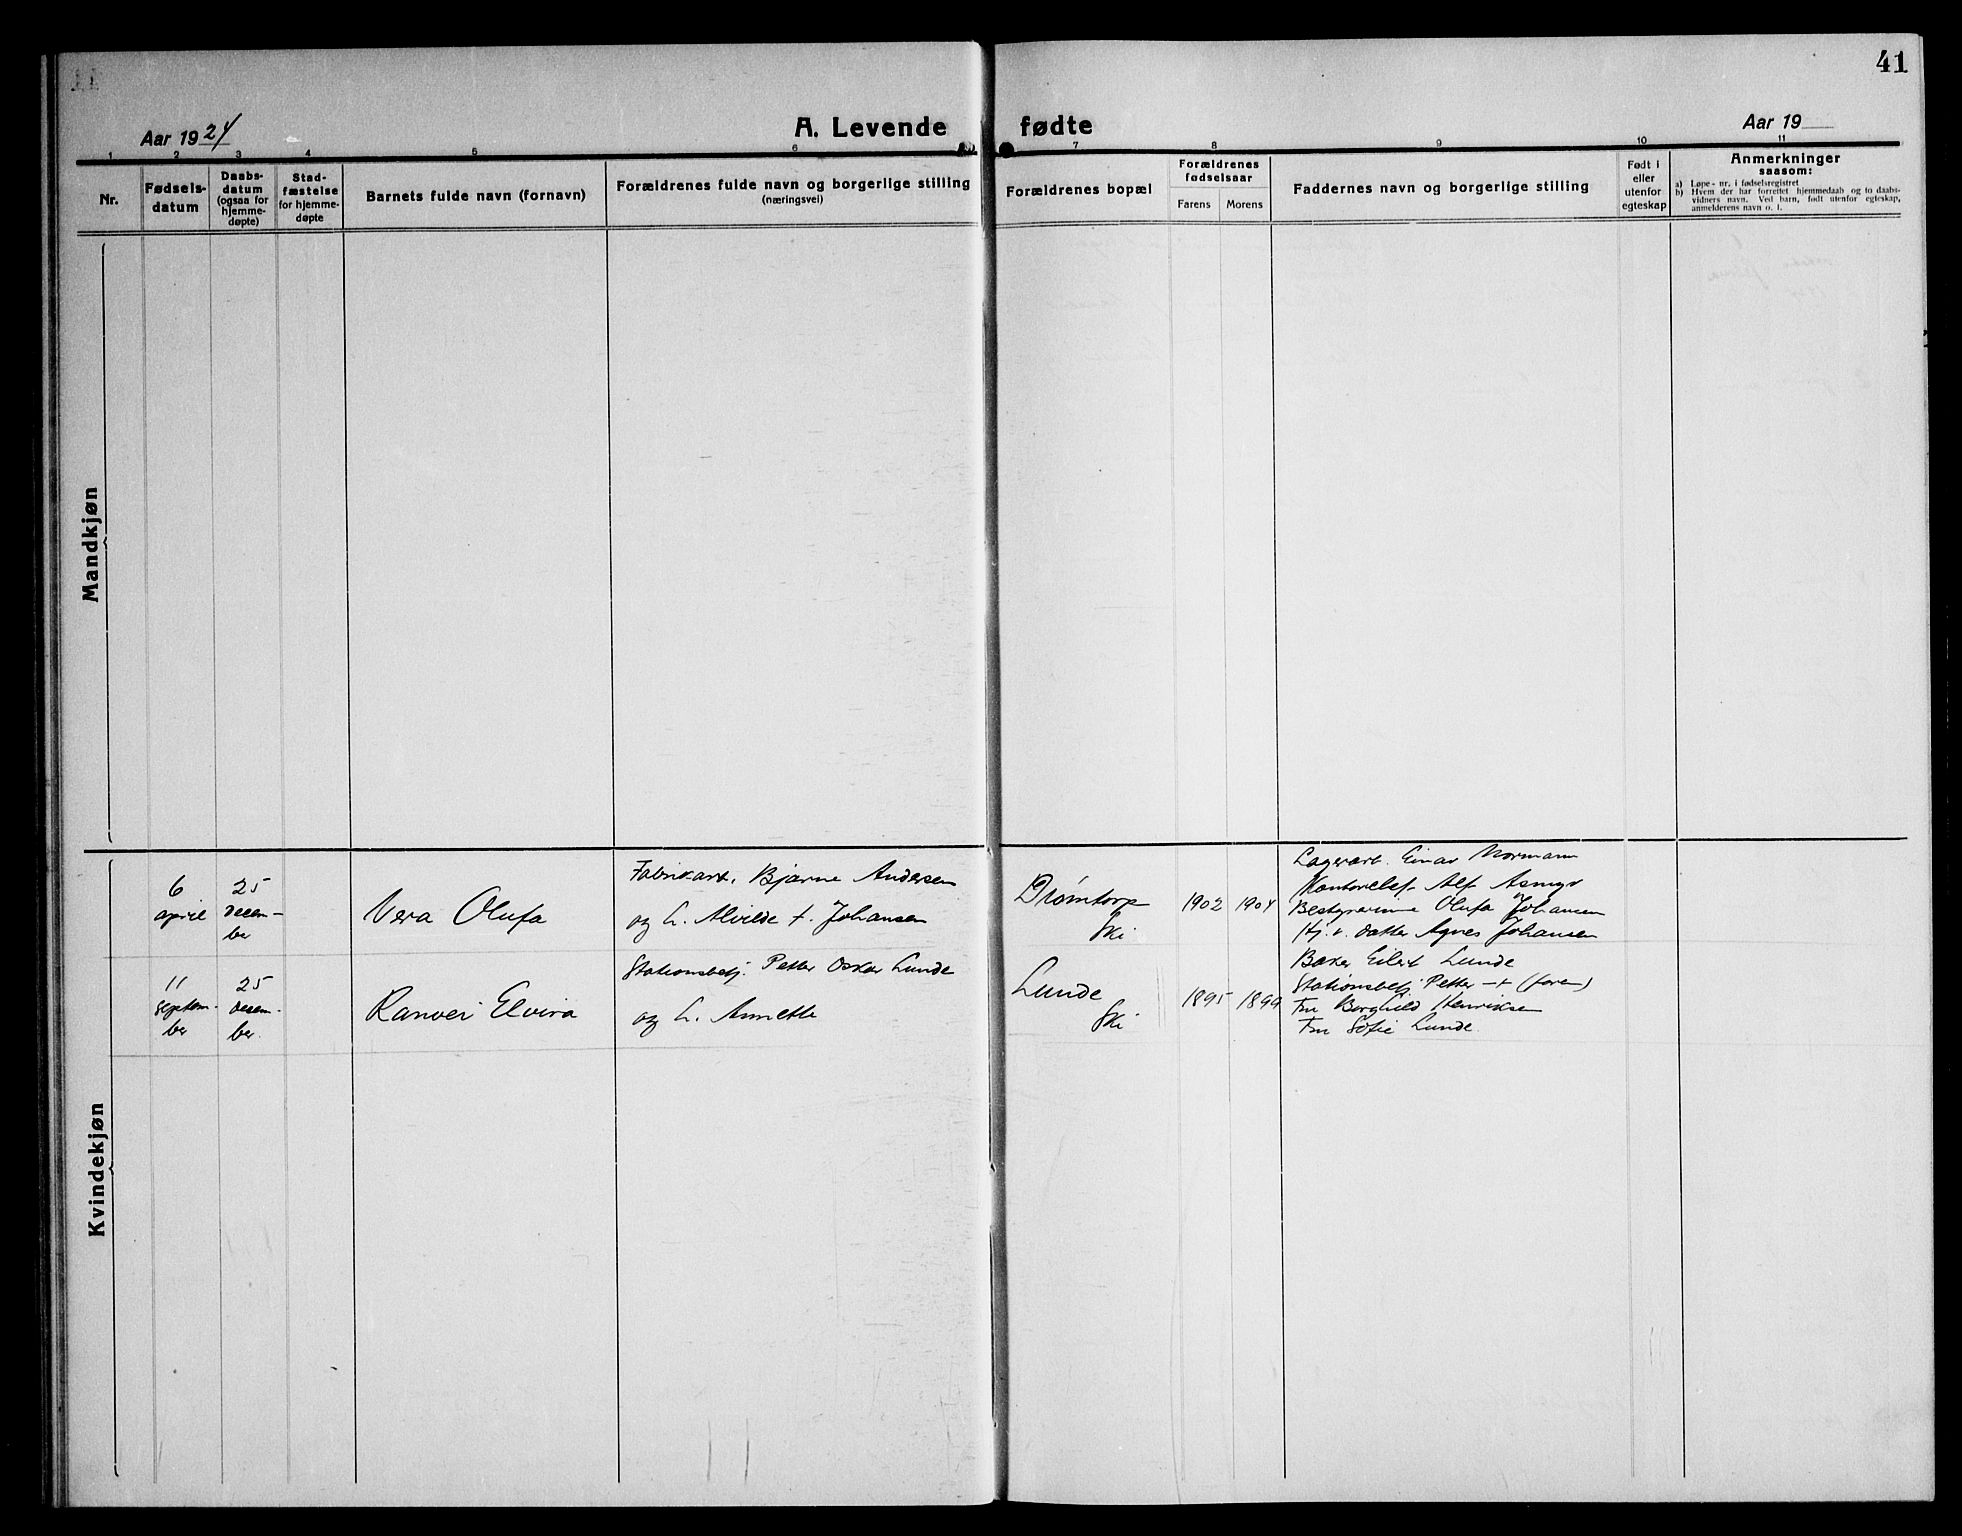 41
Aar 1924
A. Levende fødte
Aar 19
1 2 3 4 5 6 7 8 9 10 11
Nr.
Fødsels-
datum
Daabs-
datum
(ogsaa for
hjemme-
døpte)
Stad-
fæstelse
for hjemme-
døpte
Barnets fulde navn (fornavn)
Forældrenes fulde navn og borgerlige stilling
(næringsvei)
Forældrenes bopæl
Forældrenes
fødselsaar
Farens Morens
Faddernes navn og borgerlige stilling
Født i
eller
utenfor
egteskap
Anmerkninger
saasom:
a) Løpe-nr. i fødselsregistret
b) Hvem der har forrettet hjemmedaab og to daabs-
vidners navn. Ved barn, født utenfor egteskap,
anmelderens navn o. l.
Mandkjøn
Kvindekjøn
6
april
25
decem-
ber
Vera Olufa
Fabrikarb. Bjarne Andersen
og h. Alvilde f. Johansen
Drømtorp
Ski
1902 1904
Lagerarb. Einar Normann
Kontorchef Alf Asmyr
Bestyrerinne Olufa Johansen
Hj. v. datter Agnes Johansen
11
septem-
ber
25
decem-
ber.
Ranvei Elvira
Stationsbetj. Petter Oskar Lunde
og h. Annette
Lunde
Ski
1895 1899
Baker Eilert Lunde
Stationsbetj. Petter -"- (faren)
Fru Borghild Henriksen
Fru Sofie Lunde